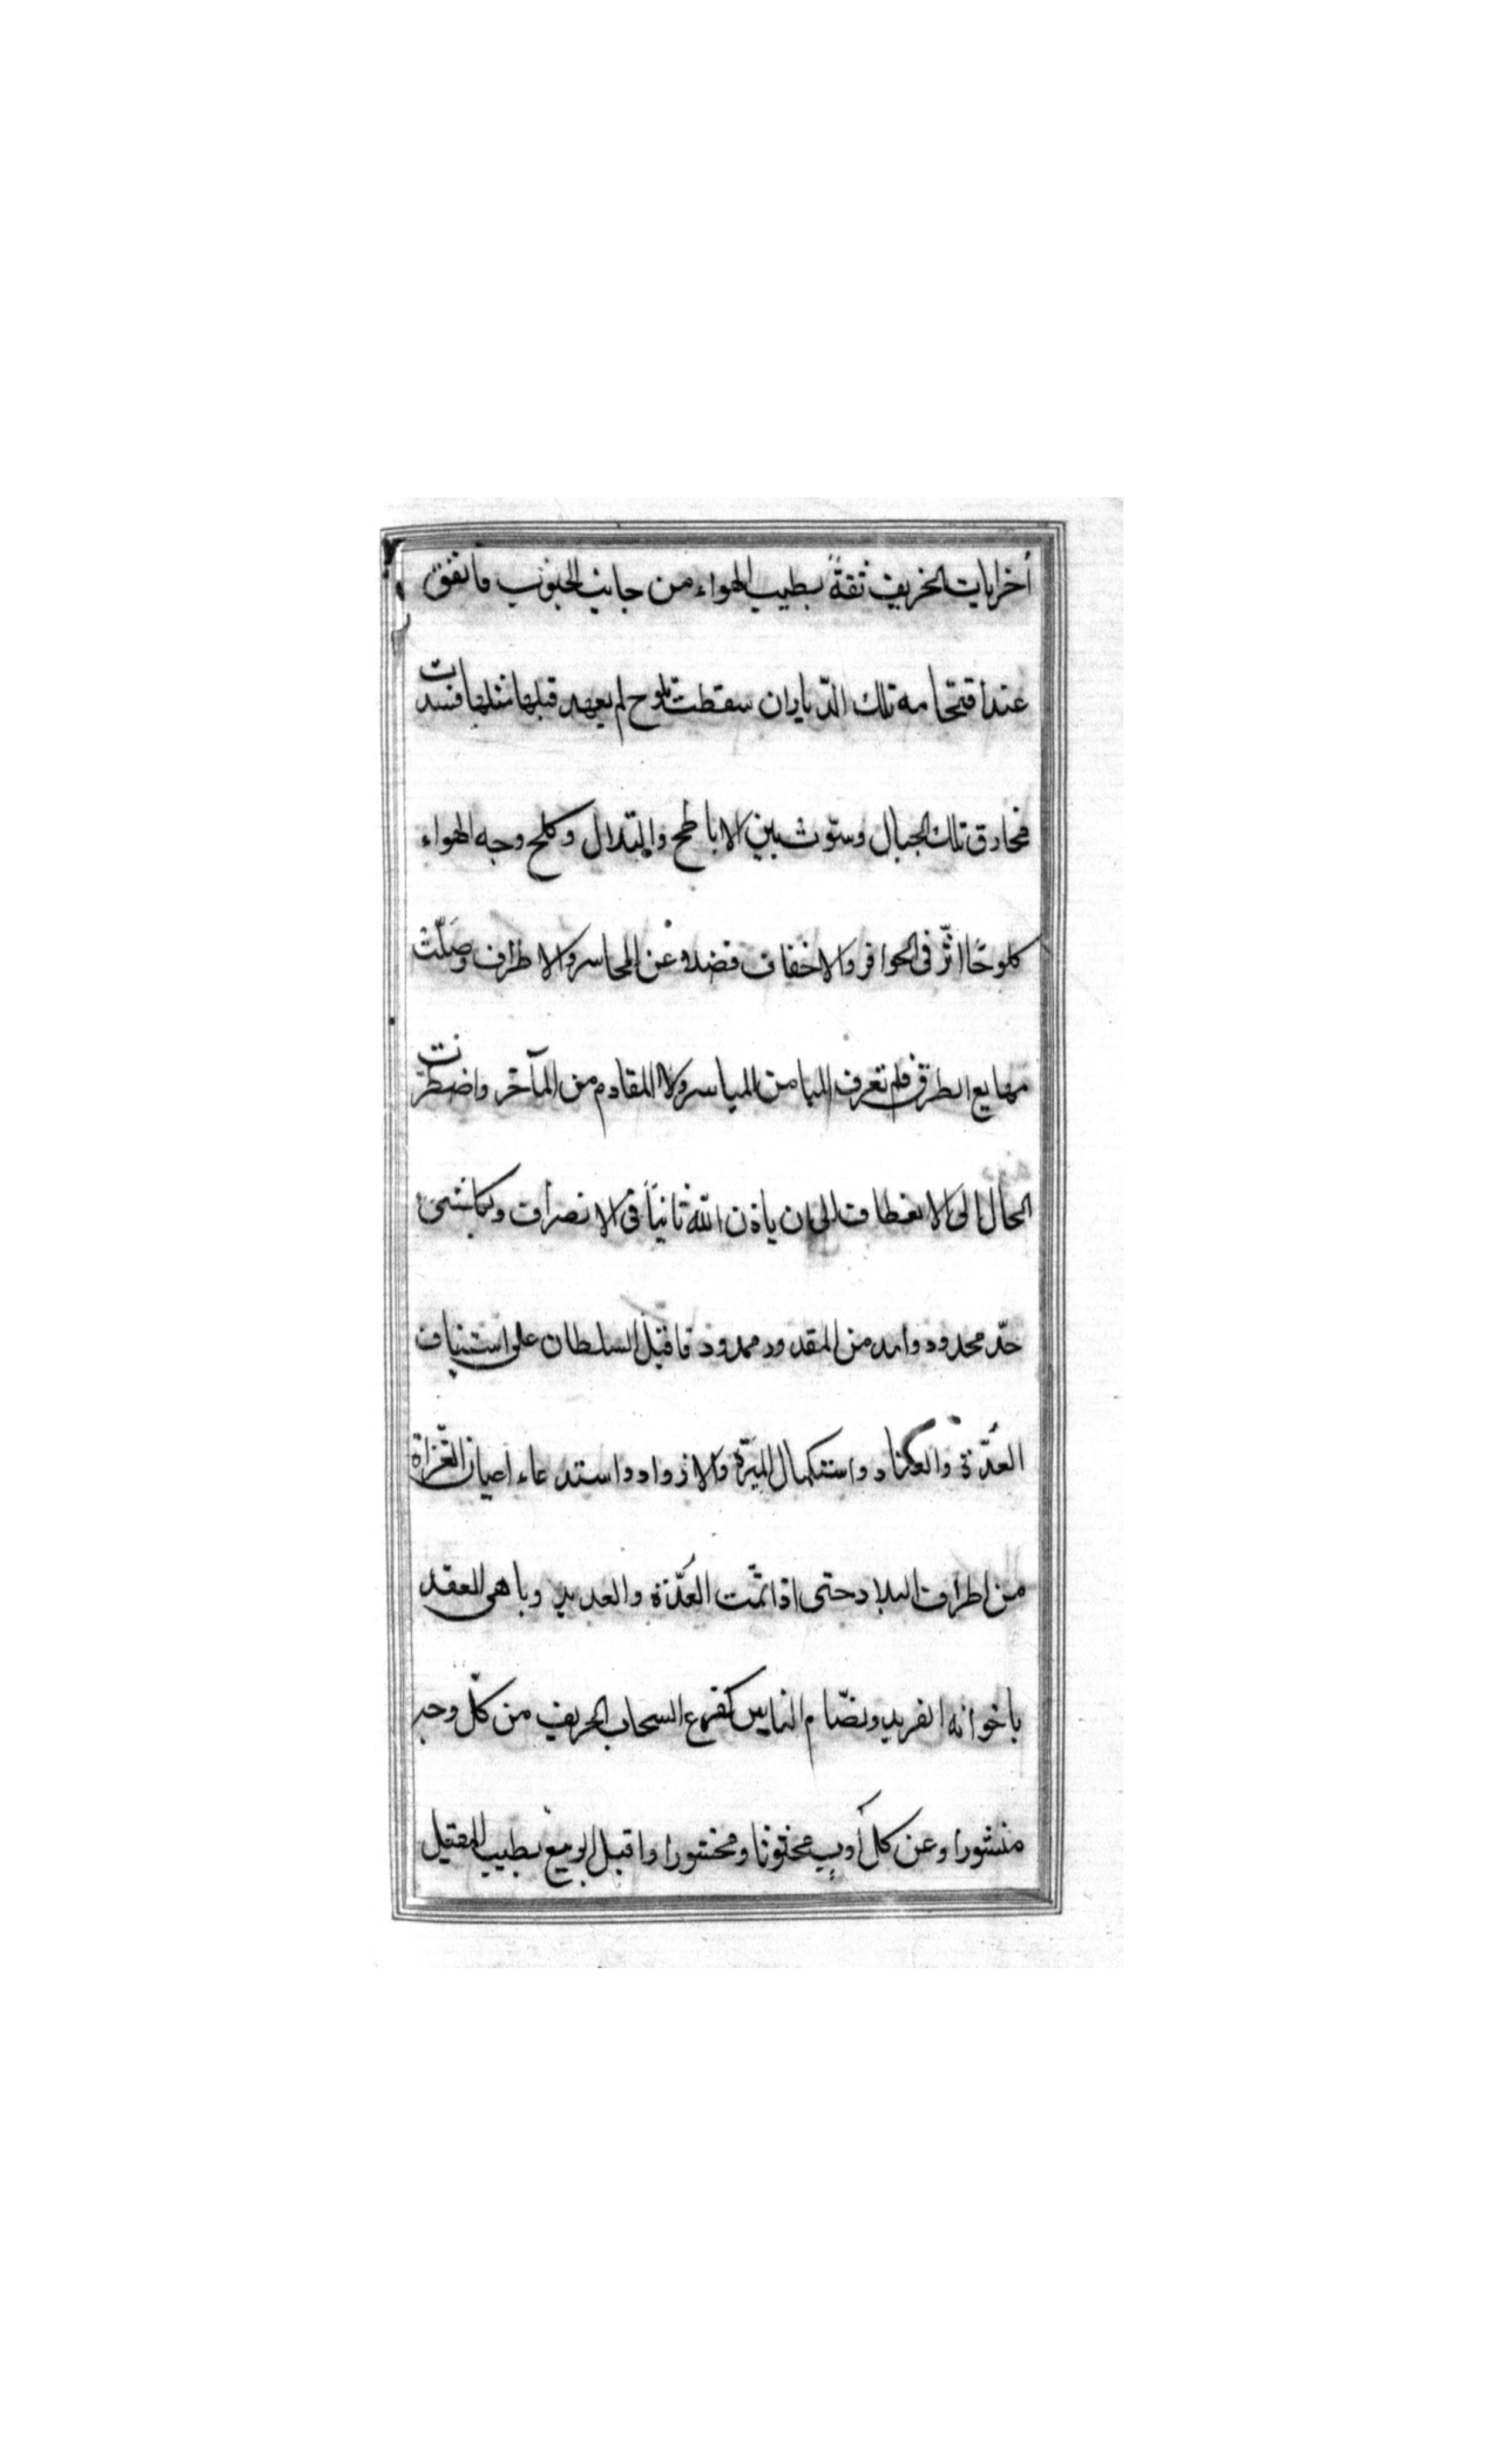 أخرايات الخريف ثقةً بطيب الهواء من جانب الجنوب فاتفق
عند اقتحامه تلك الديار ان سقطت ثلوح لم يعهد قبلها مثلها فسدت
مخارق تلك الجبال وسوّت بين الاباطح والتلال وكلح وجه الهواء
كلوحًا اثّر فى الحوافر والاخفاف فضلا عن المحاسر والاطراف وضلّت
مهايع الطرق فلم تعرف الميامن المياسر ولا المقادم من المآخر واضطرّت
الحال الى الانعطاف الى ان ياذن الله ثانيًا فى الانصراف ولكل شىء
حدّ محدود وامد من المقدور ممدود فاقبل السلطان على استيناف
العُدّة والعتاد واستكمال الميرة والازواد واستدعاء اعيان الغزاة
من اطراف البلاد حتى اذا تمّت العُدّة والعديد وباهى العقد
باخوانه الفريد وتضّام الناس كقزع السحاب الخريف من كلّ وجه
منشورا وعن كل أوبٍ محثوثا ومحشورا واقبل الربيع بطيب المقيل